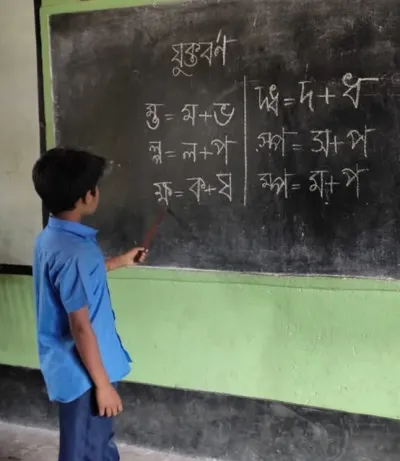 যুক্তবর্ণ
ম্ভ = ম+ভ
ল্প = ল+প
ক্ষ = ক+ষ
দ্ধ = দ+ধ
স্প = স+প
ম্প = ম+প